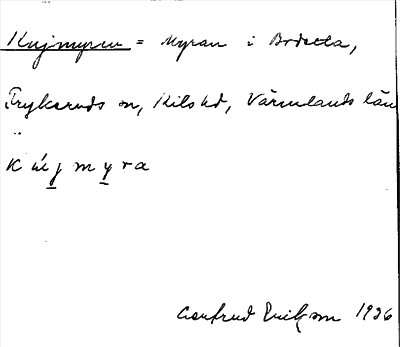 Kujmyren = Myran i Brösta,
Frykeruds sn, Kils hd, Värmlands län
K új m y r a
Gertrud Ericsson 1936